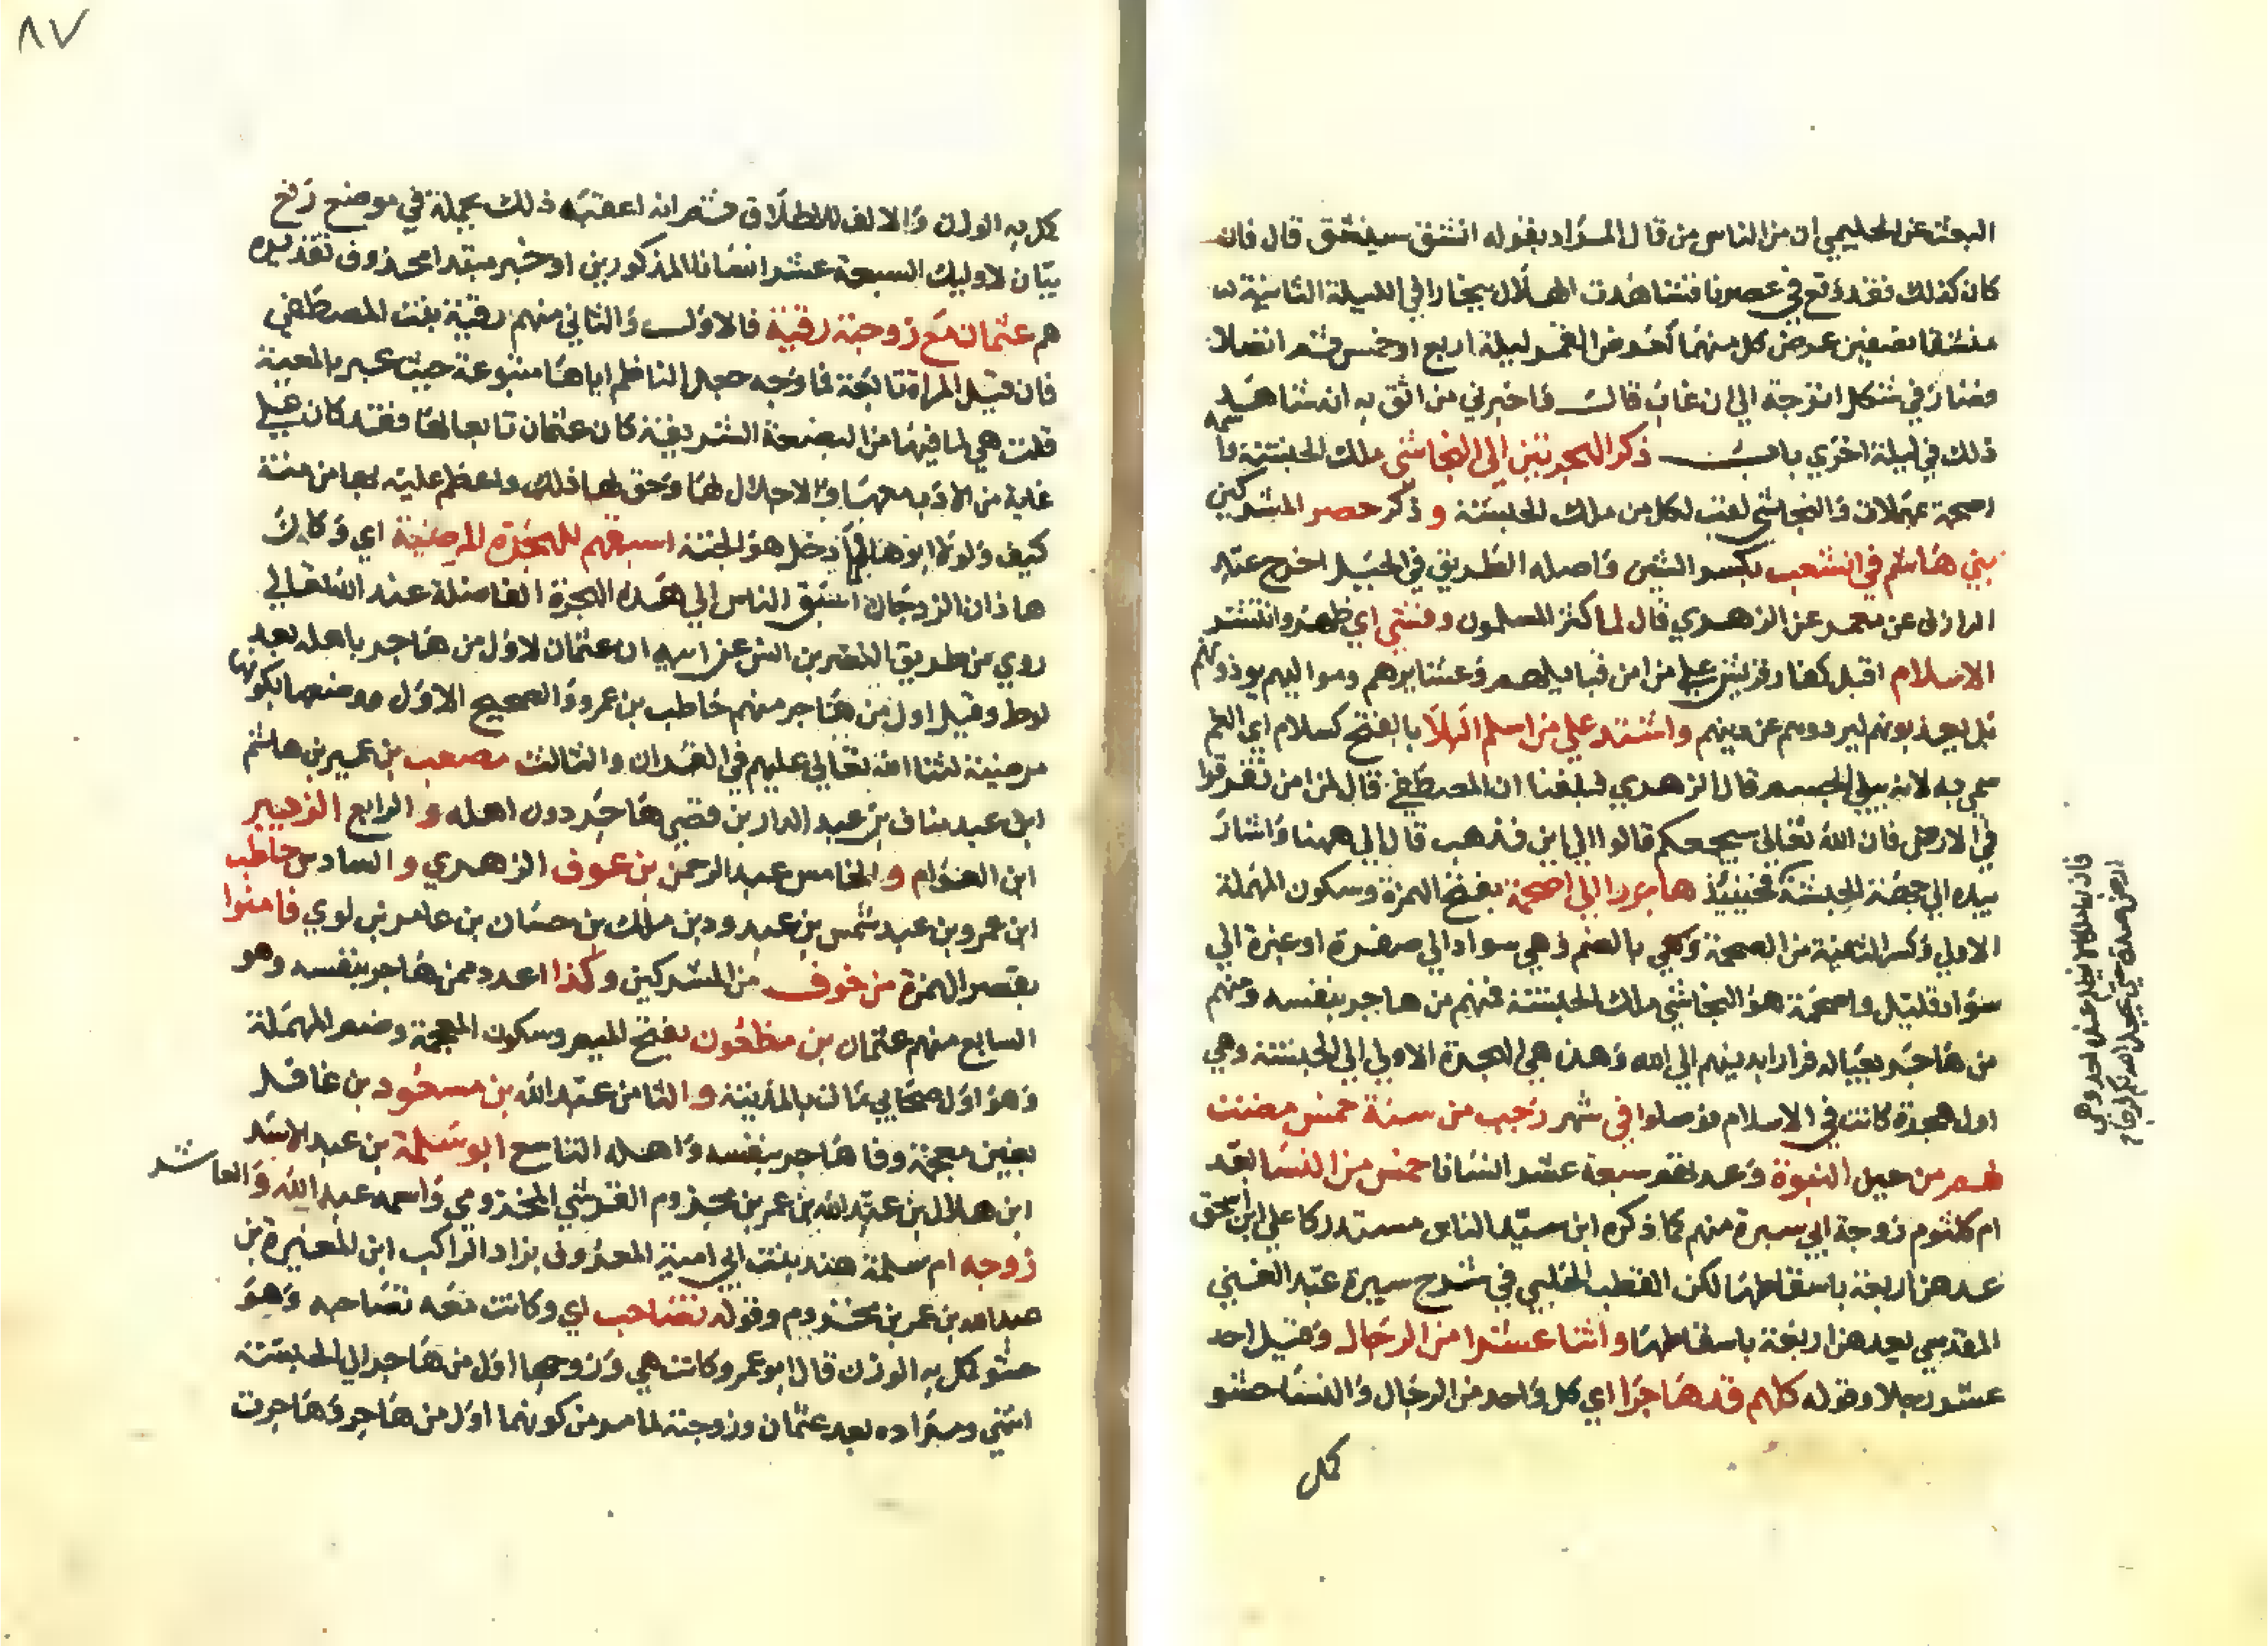 البعث عن الحليمي ان من الناس من قال المراد بقوله انشق سينشق قال فان
كان كذلك فقد وقع في عصرنا فشاهدت الهلال ببخارا في الليلة الثانية
منشقا نصفين عرض كل منهما كعرض القمر ليلة اربع او خمس ثم اتصلا
فصار في شكل اترجة الى ان غاب قال واخبرني من اثق به انه شاهد
ذلك في ليلة اخري باب ذكر الهجرتين الي النجاشي ملك الحبشة واسمه
اصحمة عهملات والنجاشي لقب لكل من ملك الحبشة و ذكر حصر المشركين
بني هاشم في الشعب بكسر الشين واصله الطريق في الجبل اخرج عبد
الرازق عن معمر عن الزهري قال لما كثر المسلمون وفشي اي ظهر وانتشر
الاسلام اقبل كفار قريش علي من امن قبايلهم وعشايرهم ومواليهم يوذونهم
بل يعذبونهم ليردوهم عن دينهم واشتد علي من اسلم البلا بالفتح كسلام اي الغم
سمي به لانه يبلي الجسم قال الزهري فبلغنا ان المصطفي قال لمن امن تفرقوا
في الارض فان الله تعالى سيجمعكم قالوا الي اين نذهب قال الي ههنا واشار
بيده الي جهة الحبشة فحينيذ هاجروا الي اصحمة بفتح الهمزة وسكون المهملة
الاولي وكسر الثانية من الصحمة وهي بالضم وهي سواد الي صفرة او غبرة الي
سواد قليل واصحمة هو النجاشي ملك الحبشة فمنهم من هاجر بنفسه ومنهم
من هاجر بعياله فرارا بدينهم الي الله وهذه هي الهجرة الاولي الي الحبشة وهي
اول هجرة كانت في الاسلام فوصلوا في شهر رجب من سنة خمس مضت
لهم من حين النبوة وعدتهم سبعة عشر انسانا خمس من النسا بعد
ام كلثوم زوجة ابي سبرة منهم كما ذكره ابن سيد الناس مستدركا علي ابن اسحق
عدهن اربعة باسقاطها لكن القطب الحلبي في شرح سيرة عبد الغني
المقدسي بعدهن اربعة باسقاطها واثنا عشرا من الرجال وقيل احد
عشر رجلا وقوله كلهم قد هاجرا اي كل واحد من الرجال والنسا حشو
كمل
٨٧
كمل به الوزن والالف للاطلاق ثم انه اعقب ذلك بجملة في موضع رفع
بيان لاوليك السبعة عشر انسانا المذكورين او خبر مبتدا محذوف تقديره
هم عثمان مع زوجته رقية فالاول والثاني منهم رقية بنت المصطفي
فان قيل المراة تابعة فما وجه جعل الناظم اياها متبوعة حيث عبر بالمعية
قلت هي لما فيها من البضعة الشريفة كان عثمان تابعا لها فقد كان علي
غاية من الادب معها والاجلال لها وحق لها ذلك واعظم عليه بها من منة
كيف ولولا ابوها لما دخل هو الجنة اسبقهم للهجرة المرضية اي وكان
هاذان الزوجان اسبق الناس الي هذه الهجرة الفاضلة عند الله تعالي
روي من طريق النضر بن انس عن ابيه ان عثمان لاول من هاجر باهله بعد
لوط وقيل اول من هاجر منهم حاطب بن عمرو والصحيح الاول ووصفها بكونها
مرضية لثنا الله تعالي عليهم في القران والثالث مصعب بن عمير بن هاشم
ابن عبد مناف بن عبد الدار بن قصي هاجر دون اهله و الرابع الزبير
ابن العوام و الخامس عبد الرحمن بن عوف الزهري و السادس حاطب
ابن عمرو بن عبد شمس بن عبد ود بن ملك بن حسان بن عامر بن لوي فامنوا
بقصر الهمزة من خوف من المشركين وكذا اعدد ممن هاجر بنفسه وهو
السابع منهم عثمان بن مظعون بفتح الميم وسكون المعجمة وضم المهملة
وهو اول صحابي مات بالمدينة و الثامن عبد الله بن مسعود بن غافل
بغين معجمة وفا هاجر بنفسه واهله التاسع ابو سلمة بن عبد الاسد
ابن هلال بن عبد الله بن عمر بن مخزوم القرشي المخزومي واسمه عبد الله والعاشر
زوجه ام سلمة هند بنت ابي امية المعروف بزاد الراكب ابن المغيرة بن
عبد الله بن عمر بن مخزوم وقوله تصاحب اي وكانت معه تصاحبه وهو
حشو لمكمل به الوزن قال ابو عمر وكانت هي وزوجها اول من هاجر الي الحبشة
انتهي ومراده بعد عثمان وزوجته لما مر من كونهما اول من هاجر وهاجرت